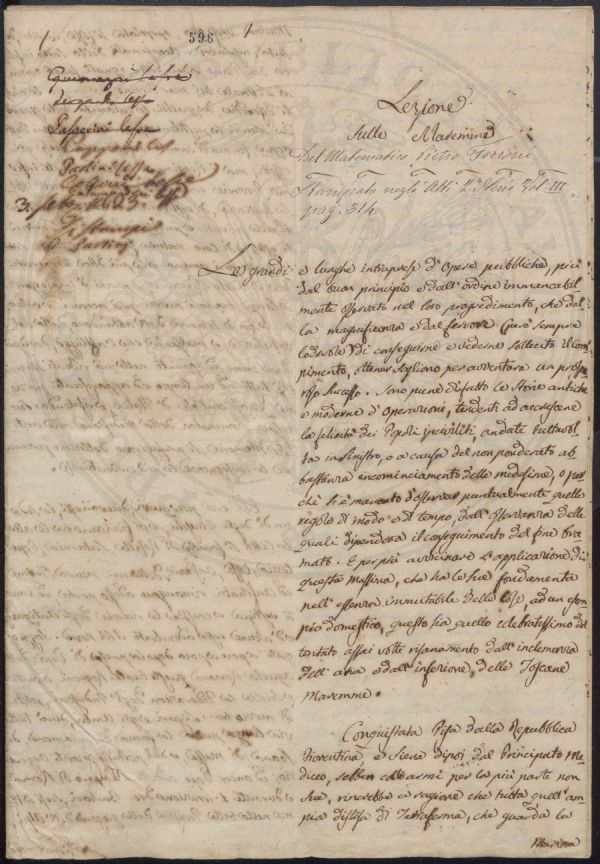 596
3.
Lezione
Sulle Maremme
Del Matematico Pietro Ferroni
Stampata negli Atti Serie Vol. III
pag. 314.
Le grandi e lunghe intraprese d'Opere pubbliche, più
dal buon principio e dall'ordine immancabil-
mente osservato nel loro progredimento, che dal-
la magnificenza e dal fervore (però sempre
lodevole) di conseguirne e vederne sollecito il com-
pimento, ottener sogliono per avventura un prospe-
roso successo. Sono piene di fatto le Storie antiche
e moderne d'Operazioni, tendenti ad accrescere
la felicità dei Popoli inciviliti, andate tuttavol-
ta in sinistro, o a causa del non ponderato ab-
bastanza incominciamento delle medesime, o per-
chè si è mancato d'osservar puntualmente quelle
regole di modo e di tempo, dall'osservanza delle
quali dipendeva il conseguimento del fine bra-
mato. E per più avvicinare l'applicazione di
questa Massima, che ha le sue fondamenta
nell'essenza immutabile delle Cose, ad un esem-
pio domestico, questo sia quello celebratissimo del
tentato assai volte risanamento dall'inclemenza
dell'aria e dall'infezione delle Toscane
Maremme.
Conquistata Pisa dalla Repubblica
Fiorentina, e Siena dipoi dal Principato Me-
diceo, sebben coll'armi per la più parte non
sue, rincrebbe a ragione che tutta quell'am-
pia distesa di Terraferma, che guarda la
Marina